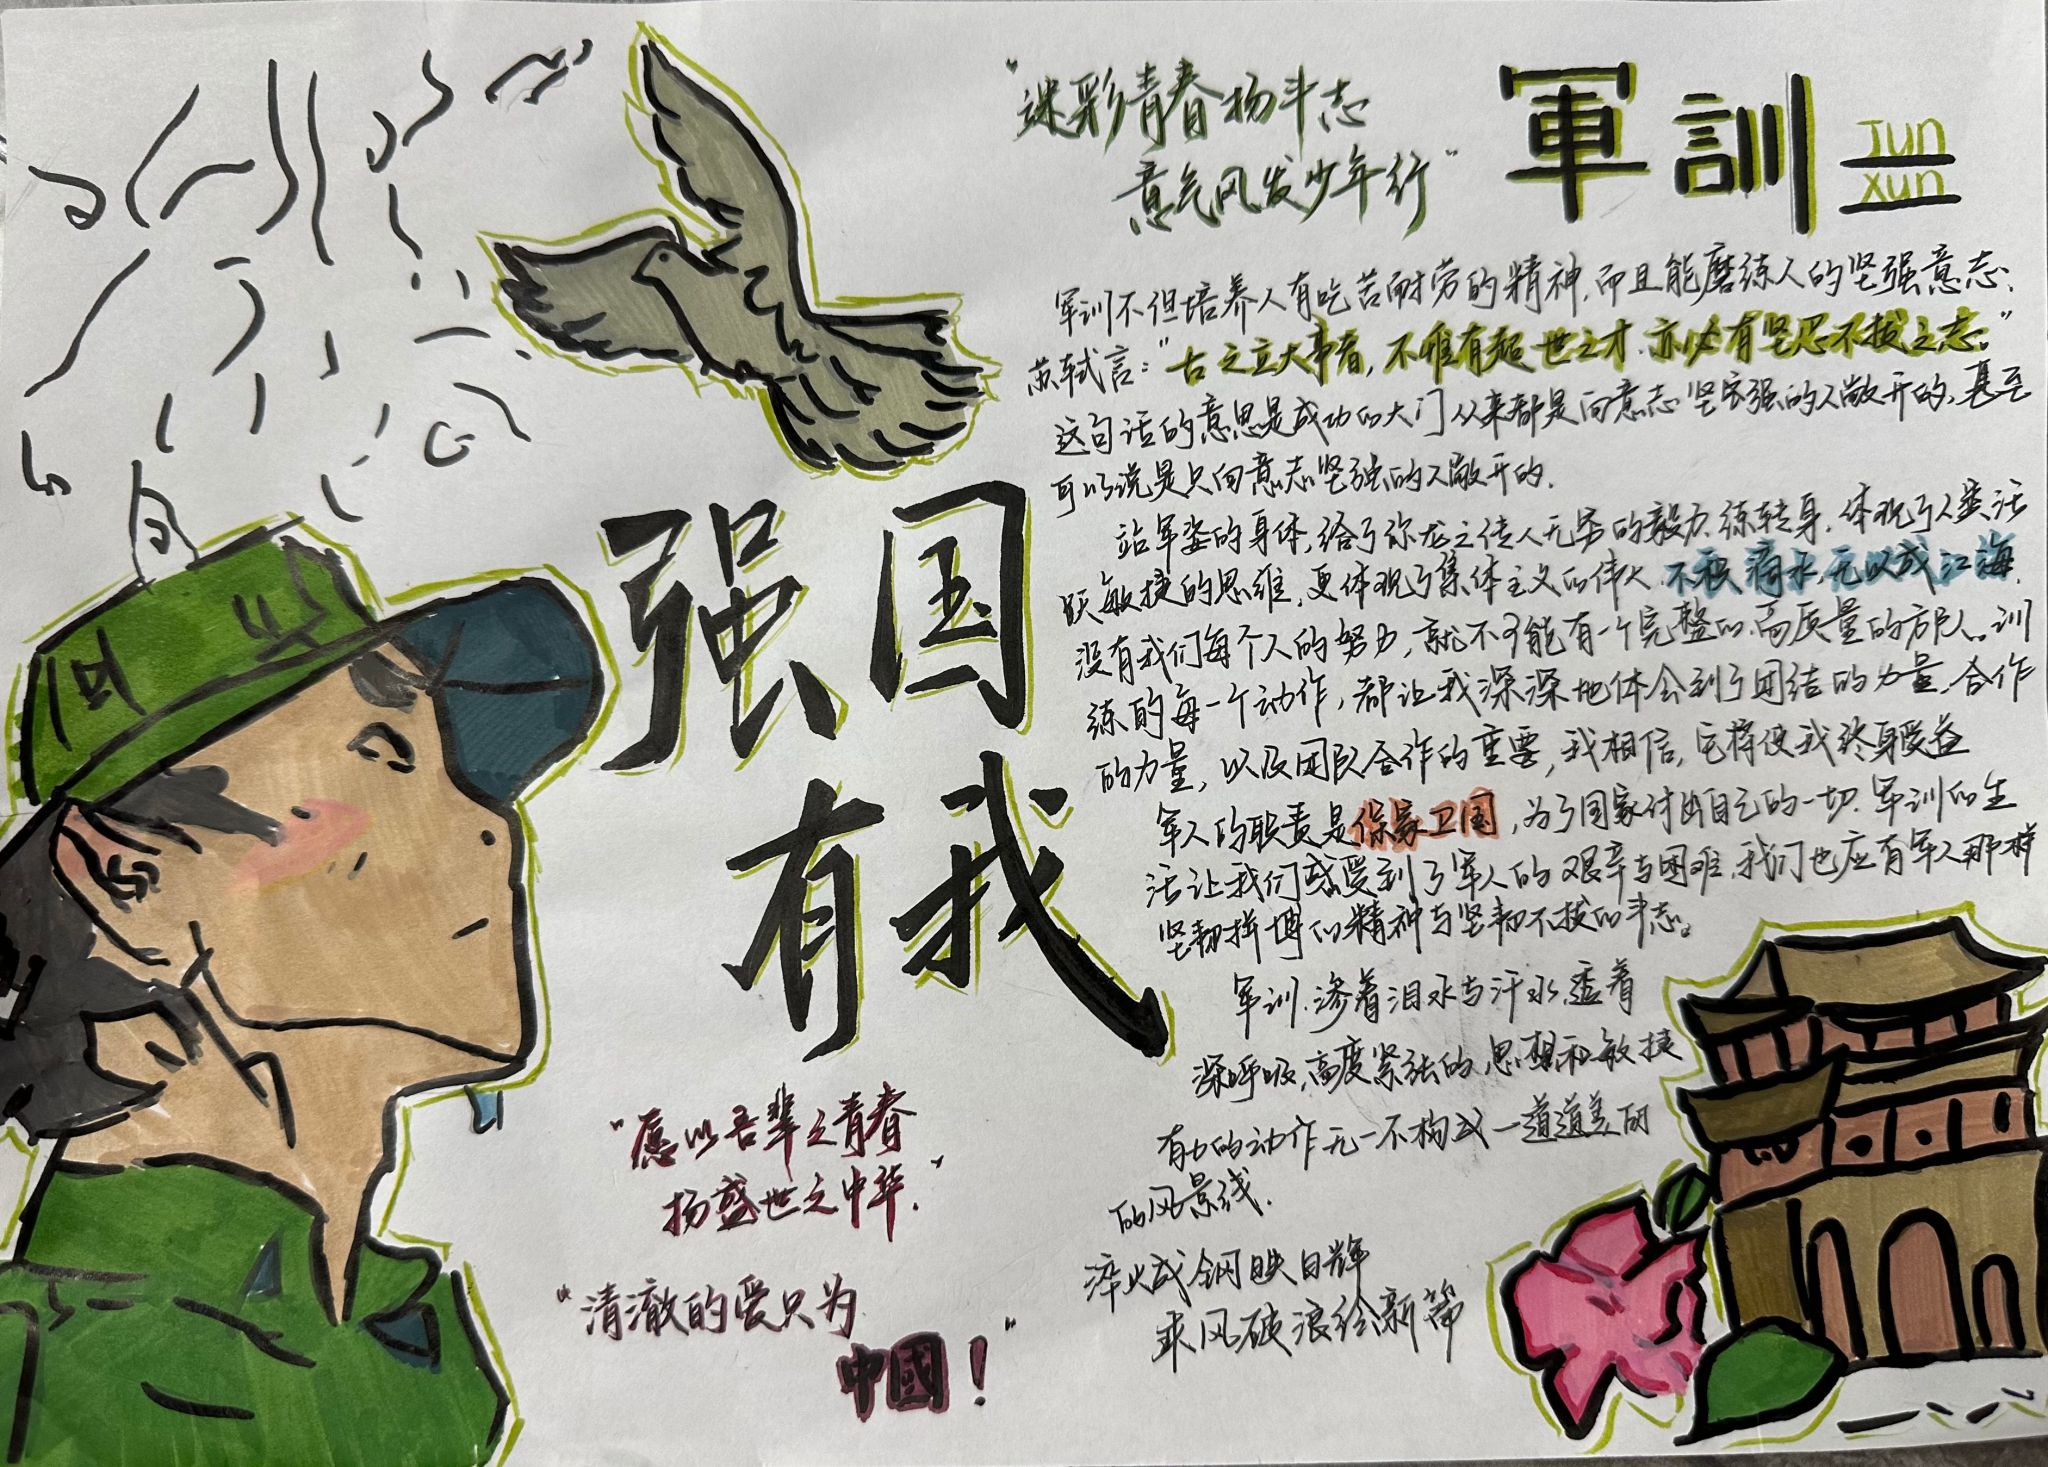 "迷彩青春扬斗志
意气风发少年行"
軍訓
Jun
xun
军训不但培养人有吃苦耐劳的精神,而且能磨练人的坚强意志、
苏轼言:"古之立大事者,不惟有超世之才,亦必有坚忍不拔之志。"
这句话的意思是成功的大门从来都是向意志坚强的人敞开的,甚至
可以说是只向意志坚强的人敞开的.
站军姿的身体,给了你龙之传人无穷的毅力,练转身,体现了人类活
跃敏捷的思维,更体现了集体主义的伟大.不积滴水,无以成江海,
没有我们每个人的努力,就不可能有一个完整的、高质量的方队。训
练的每一个动作,都让我深深地体会到了团结的力量,合作
的力量,以及团队合作的重要,我相信,它将使我终身受益
军人的职责是保家卫国,为了国家付出自己的一切.军训的生
活让我们感受到了军人的艰辛与困难,我们也应有军人那样
坚韧拼搏的精神与坚韧不拔的斗志。
军训,渗着泪水与汗水,透着
深呼吸,高度紧张的思想和敏捷
有力的动作无一不构成一道道美丽
的风景线.
淬火成钢映日辉
乘风破浪绘新篇
强国
有我
"愿以吾辈之青春
扬盛世之中华."
"清澈的爱只为
中國!"